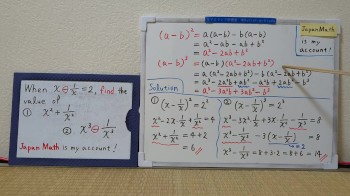 When x⊖1/x=2, find the
value of
① x²+1/x²
② x³⊖1/x³
Japan Math is my account!
(a-b)² = a(a-b) - b(a-b)
= a²-ab-ab+b²
= a²-2ab+b²
(a-b)³ = (a-b)(a²-2ab+b²)
= a(a²-2ab+b²) - b(a²-2ab+b²)
= a³-2a²b+ab²-a²b+2ab²-b³
= a³-3a²b+3ab²-b³
JapanMath
is my
account!
Solution
① (x-1/x)²=2²
x²-2x·1/x+1/x²=4
x²+1/x²=4+2
=6
② (x-1/x)³=2³
x³-3x²·1/x+3x·1/x²-1/x³=8
x³-1/x³-3(x-1/x)=8
=2
x³-1/x³=8+3·2=8+6=14